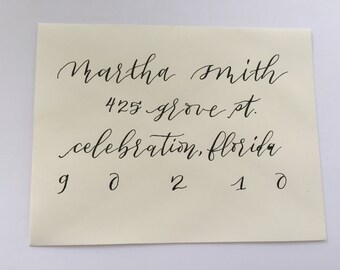 martha smith
425 grove st.
celebration, florida
9 0 2 1 0